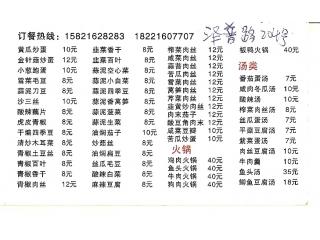 订餐热线：15821628283  18221607707
黄瓜炒蛋 10元
金针菇炒蛋 12元
小葱炮蛋 10元
雪菜毛豆 8元
蒜泥刀豆 8元
沙三丝 10元
酸辣藕片 8元
虎皮青椒 8元
干煸四季豆 8元
清炒木耳菜 8元
青椒土豆丝 8元
青椒百叶 8元
青椒香干 8元
青椒肉丝 12元
韭菜香干 8元
韭菜百叶 8元
蒜泥空心菜 8元
蒜泥米苋 8元
蒜泥小白菜 8元
蒜泥蒿菜 8元
蒜泥菠菜 8元
油焖茄子 10元
炒甜丝 8元
油焖扁豆 8元
丝瓜毛豆 8元
酸辣白菜 8元
麻辣豆腐 8元
榨菜肉丝 12元
咸菜肉丝 12元
蒜苔肉丝 12元
苦瓜肉丝 12元
茄子肉丝 12元
芹菜肉丝 12元
韭黄炒肉丝 12元
肉末茄子 12元
酸豆角肉末 12元
咸菜豆瓣 10元
苦瓜炒蛋 10元
火锅
鸡肉火锅 40元
羊肉火锅 40元
牛肉火锅 40元
狗肉火锅 40元
板鸭火锅 40元
汤类
番茄蛋汤 7元
咸肉冬瓜汤 10元
酸辣汤 10元
榨菜肉丝汤 8元
丝瓜蛋汤 7元
平菇豆腐汤 7元
紫菜蛋汤 7元
肉丝豆腐汤 10元
牛肉羹 10元
鱼头汤 35元
鲫鱼豆腐汤 18元